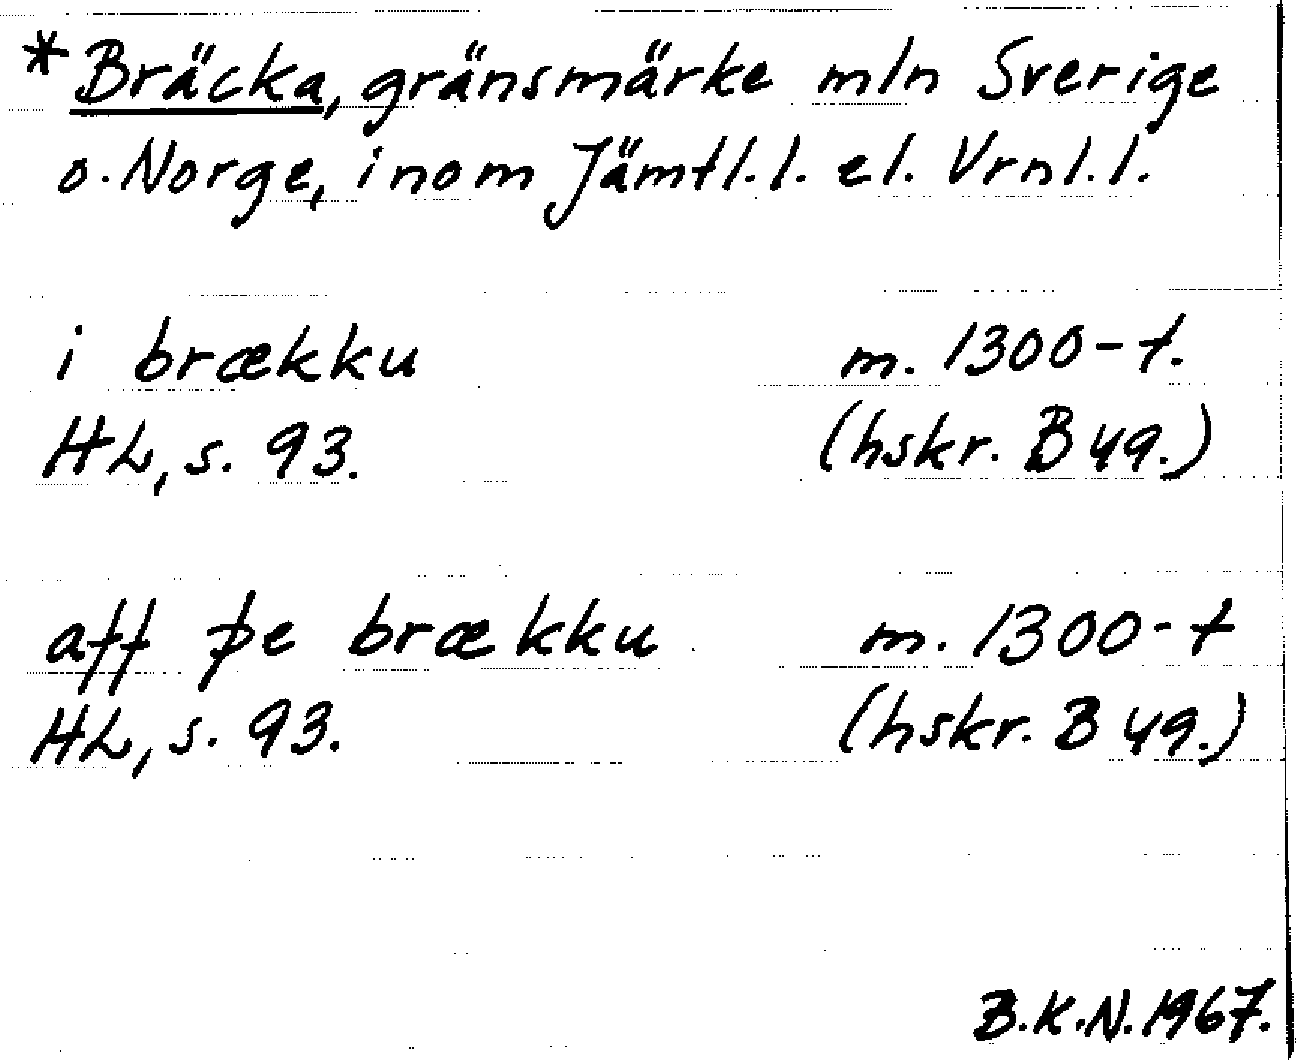 *Bräcka, gränsmärke mln Sverige
o. Norge, inom Jämtl.l. el. Vrnl.l.
i brækku m. 1300-t.
HL, s. 93. (hskr. B 49.)
aff þe brækku m. 1300-t
HL, s. 93. (hskr. B 49.)
B.K.N. 1967.